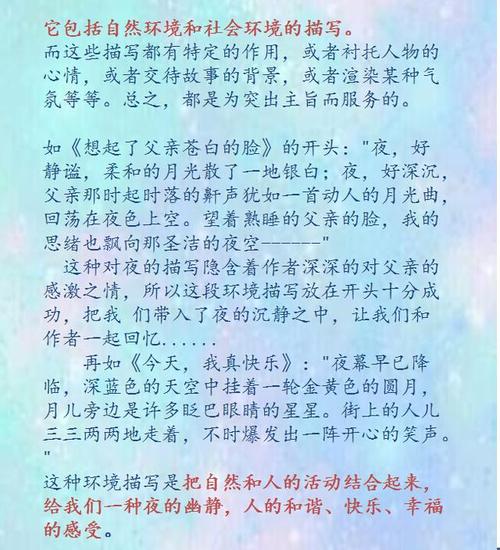 它包括自然环境和社会环境的描写。
而这些描写都有特定的作用，或者衬托人物的
心情，或者交待故事的背景，或者渲染某种气
氛等等。总之，都是为突出主旨而服务的。
如《想起了父亲苍白的脸》的开头："夜，好
静谧，柔和的月光散了一地银白；夜，好深沉，
父亲那时起时落的鼾声犹如一首动人的月光曲，
回荡在夜色上空。望着熟睡的父亲的脸，我的
思绪也飘向那圣洁的夜空------"
这种对夜的描写隐含着作者深深的对父亲的
感激之情，所以这段环境描写放在开头十分成
功，把我 们带入了夜 的沉静之中，让我们和
作者一起回忆......
再如《今天，我真快乐》："夜幕早已降
临，深蓝色的天空中挂着一轮金黄色的圆月，
月儿旁边是许多眨巴眼睛的星星。街上的人儿
三三两两地走着，不时爆发出一阵开心的笑声。
"
这种环境描写是把自然和人的活动结合起来，
给我们一种夜的幽静，人的和谐、快乐、幸福
的感受。